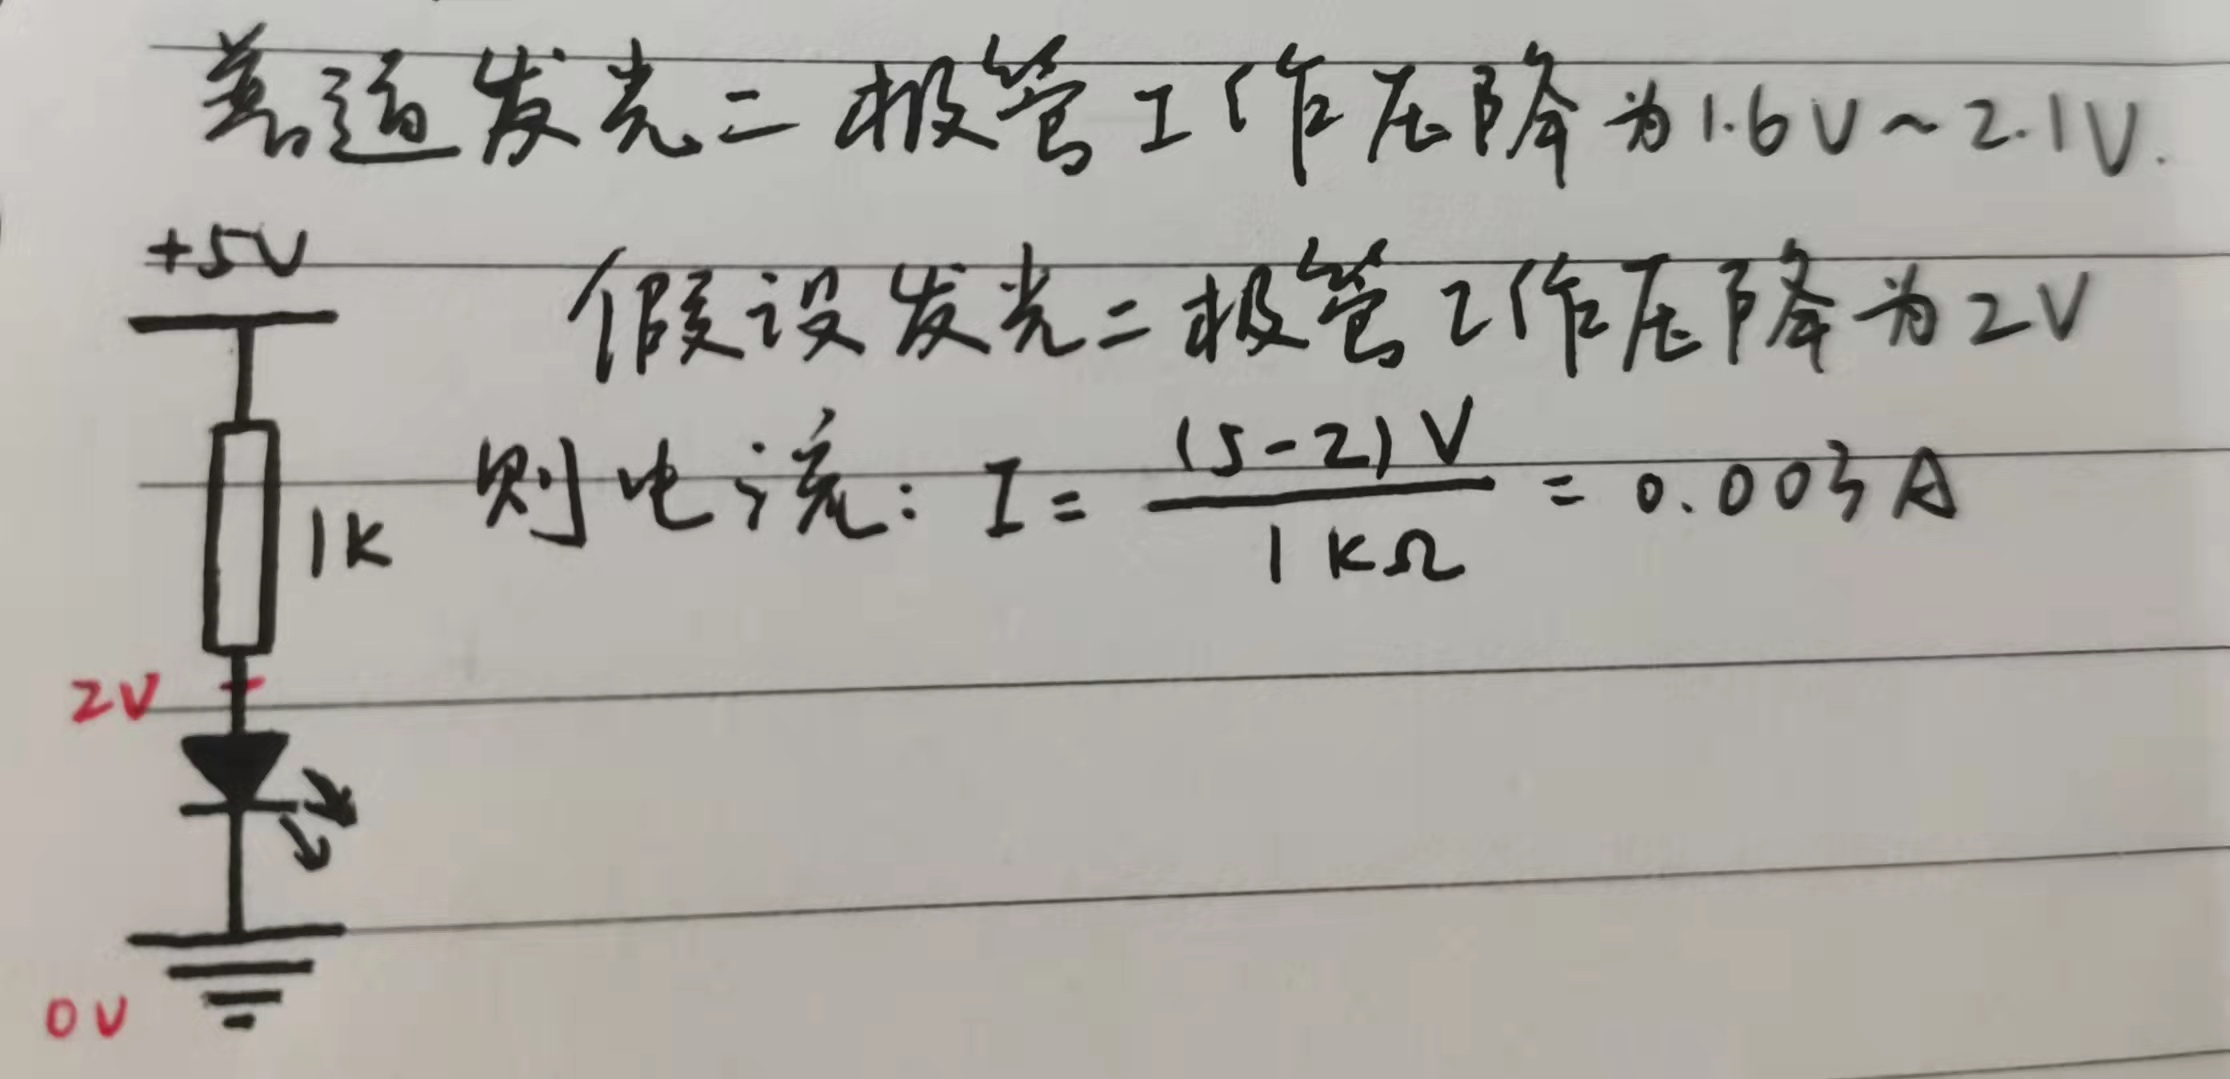 普通发光二极管工作压降为1.6V~2.1V.
+5V
假设发光二极管工作压降为2V
则电流: I = (5-2)V / 1KΩ = 0.003A
1K
2V
0V